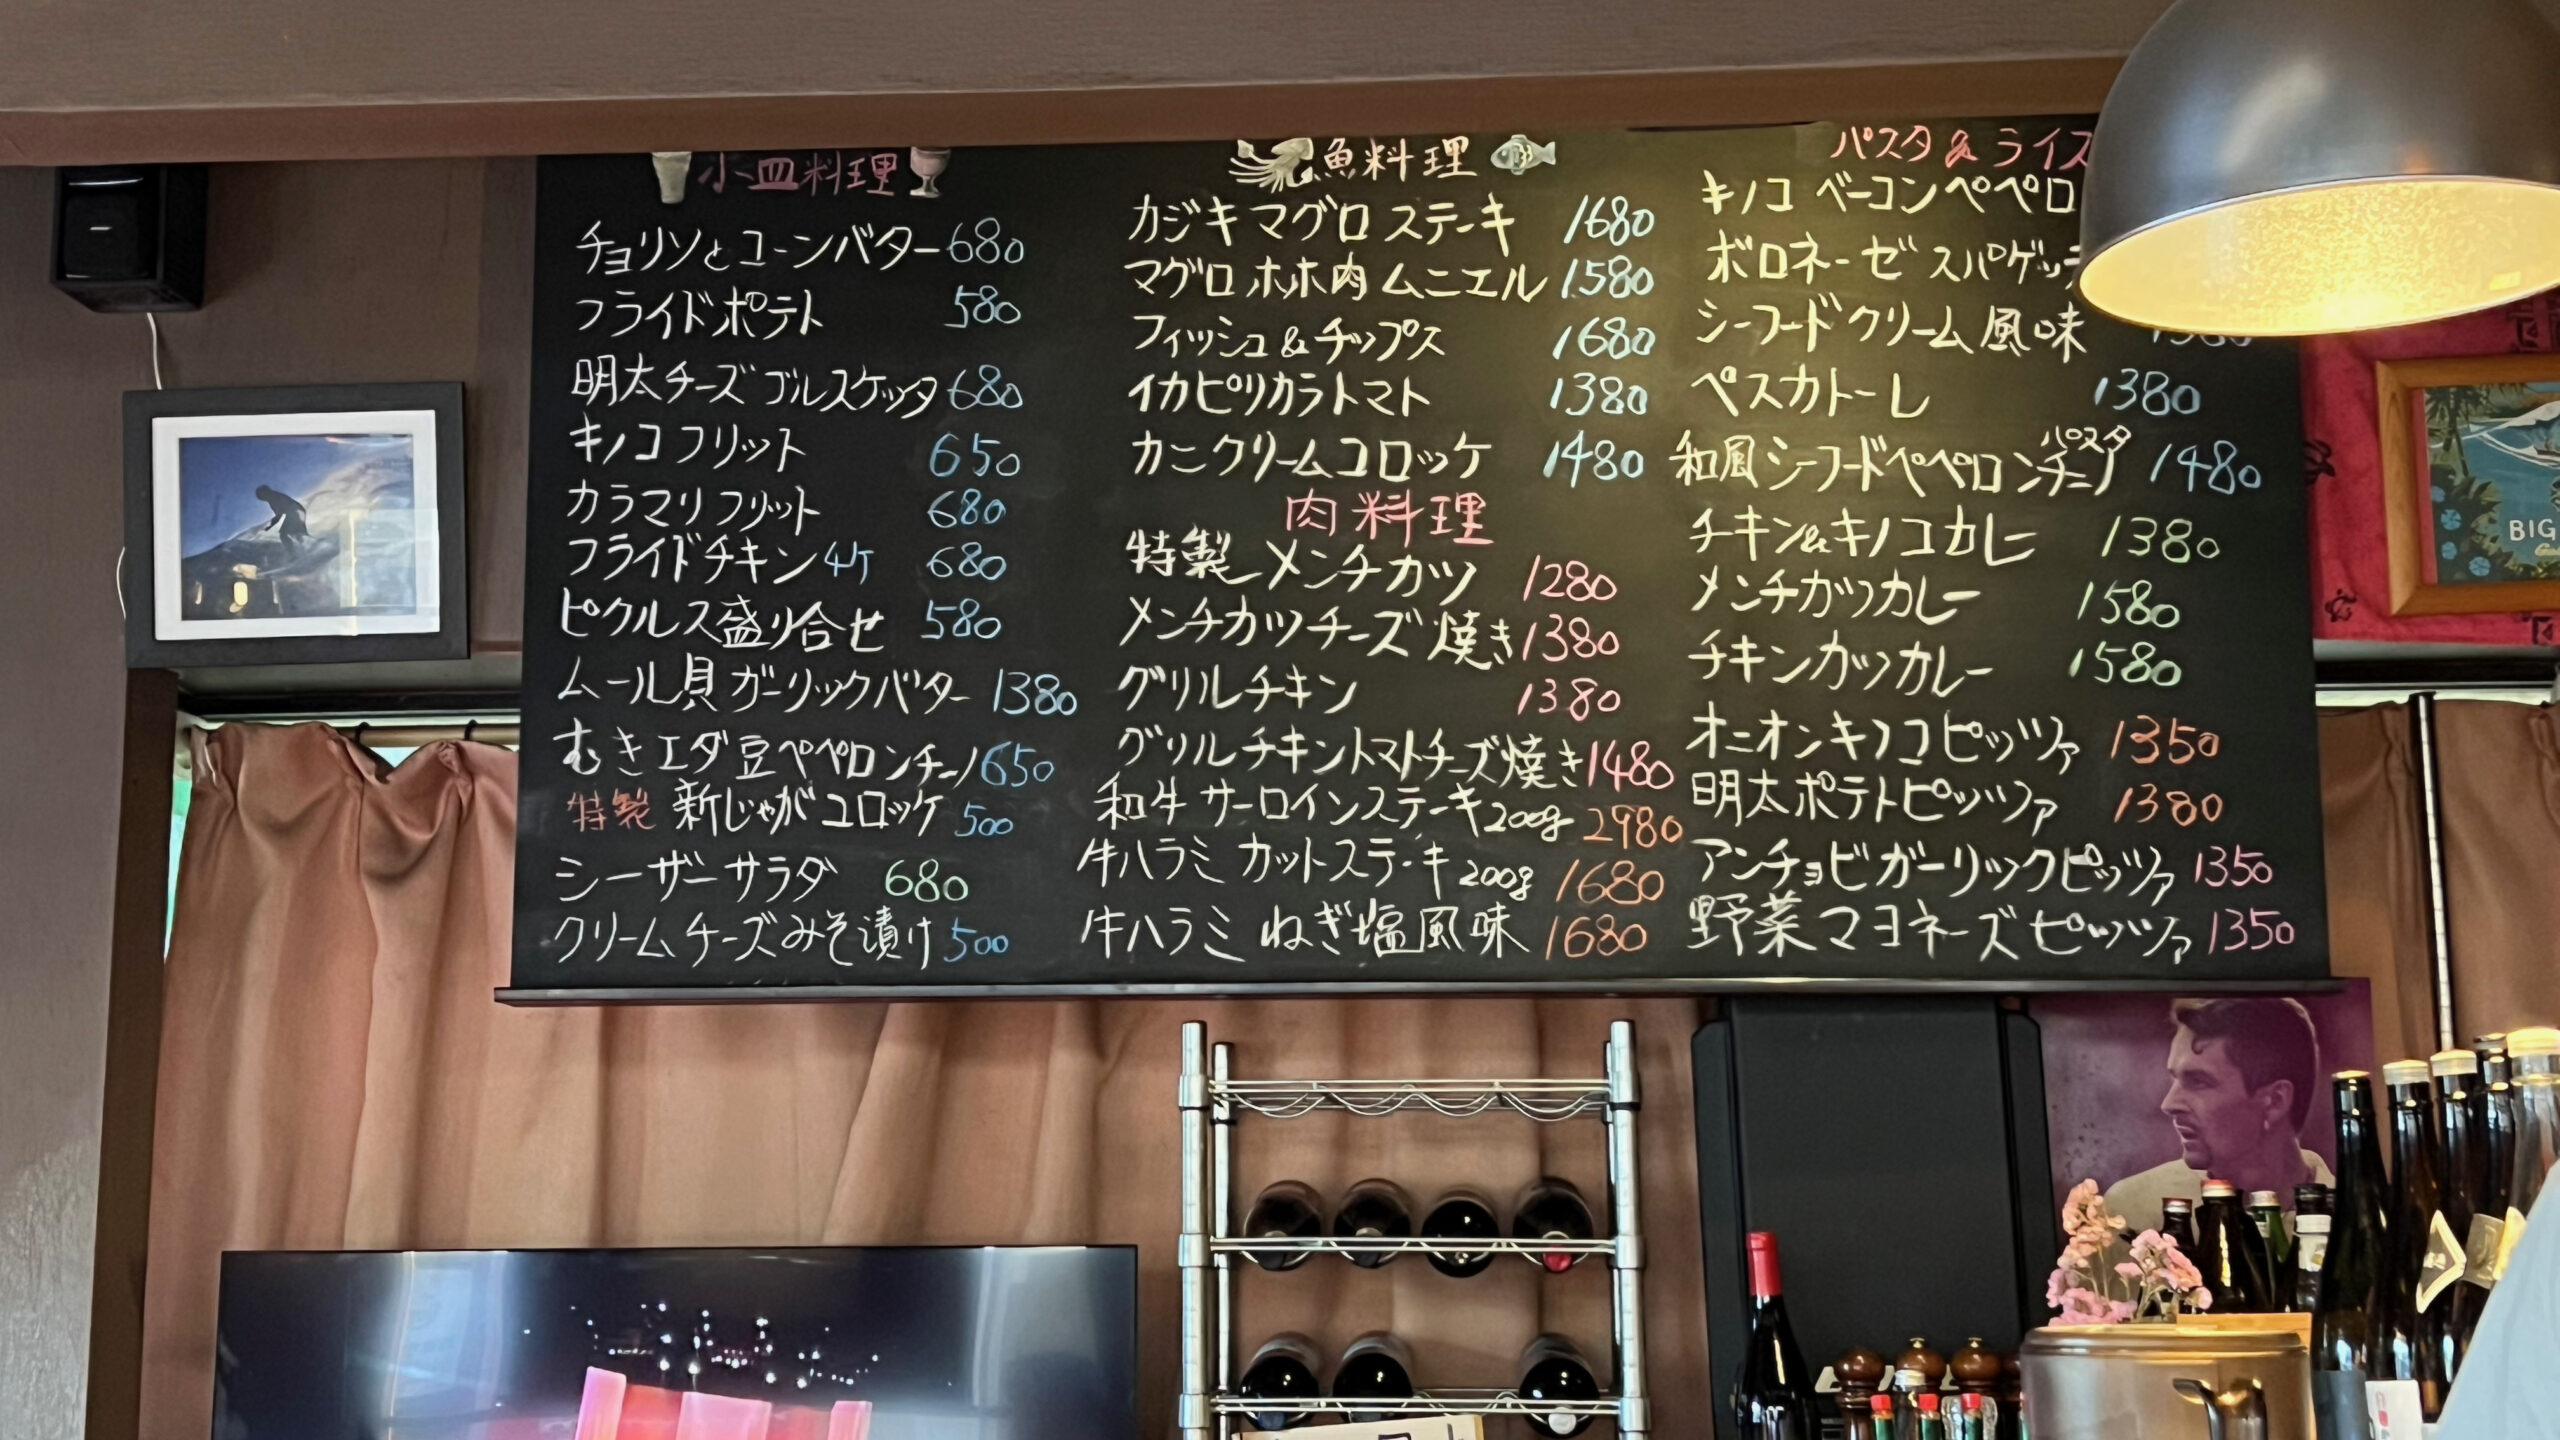 小皿料理
チョリソとコーンバター 680
フライドポテト 580
明太チーズブルスケッタ 680
キノコフリット 650
カラマリフリット 680
フライドチキン4ケ 680
ピクルス盛り合せ 580
ムール貝ガーリックバター 1380
むきエダ豆ペペロンチーノ 650
特製 新じゃがコロッケ 500
シーザーサラダ 680
クリームチーズみそ漬け 500
魚料理
カジキマグロステーキ 1680
マグロホホ肉ムニエル 1580
フィッシュ&チップス 1680
イカピリカラトマト 1380
カニクリームコロッケ 1480
肉料理
特製メンチカツ 1280
メンチカツチーズ焼き 1380
グリルチキン 1380
グリルチキントマトチーズ焼き 1480
和牛サーロインステーキ200g 2980
牛ハラミカットステーキ200g 1680
牛ハラミねぎ塩風味 1680
パスタ&ライス
キノコベーコンペペロ
ボロネーゼスパゲッテ
シーフードクリーム風味
ペスカトーレ 1380
和風シーフードペペロンチーノ パスタ 1480
チキン&キノコカレー 1380
メンチカツカレー 1580
チキンカツカレー 1580
オニオンキノコピッツァ 1350
明太ポテトピッツァ 1380
アンチョビガーリックピッツァ 1350
野菜マヨネーズピッツァ 1350
BIG